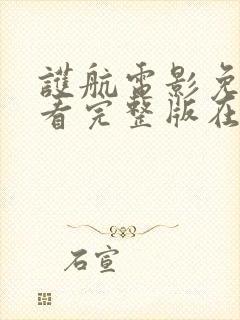 護航電影免
看完整版在
石宣